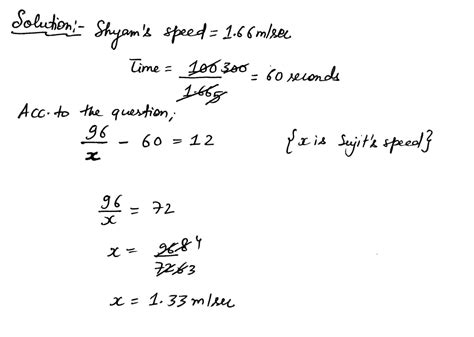 Solution:- Shyam's speed = 1.66 m/sec
Time = 100 300 / 1.66 5 = 60 seconds
Acc. to the question,
96/x - 60 = 12 {x is Sujit's speed}
96/x = 72
x = 96 8 4 / 72 6 3
x = 1.33 m/sec